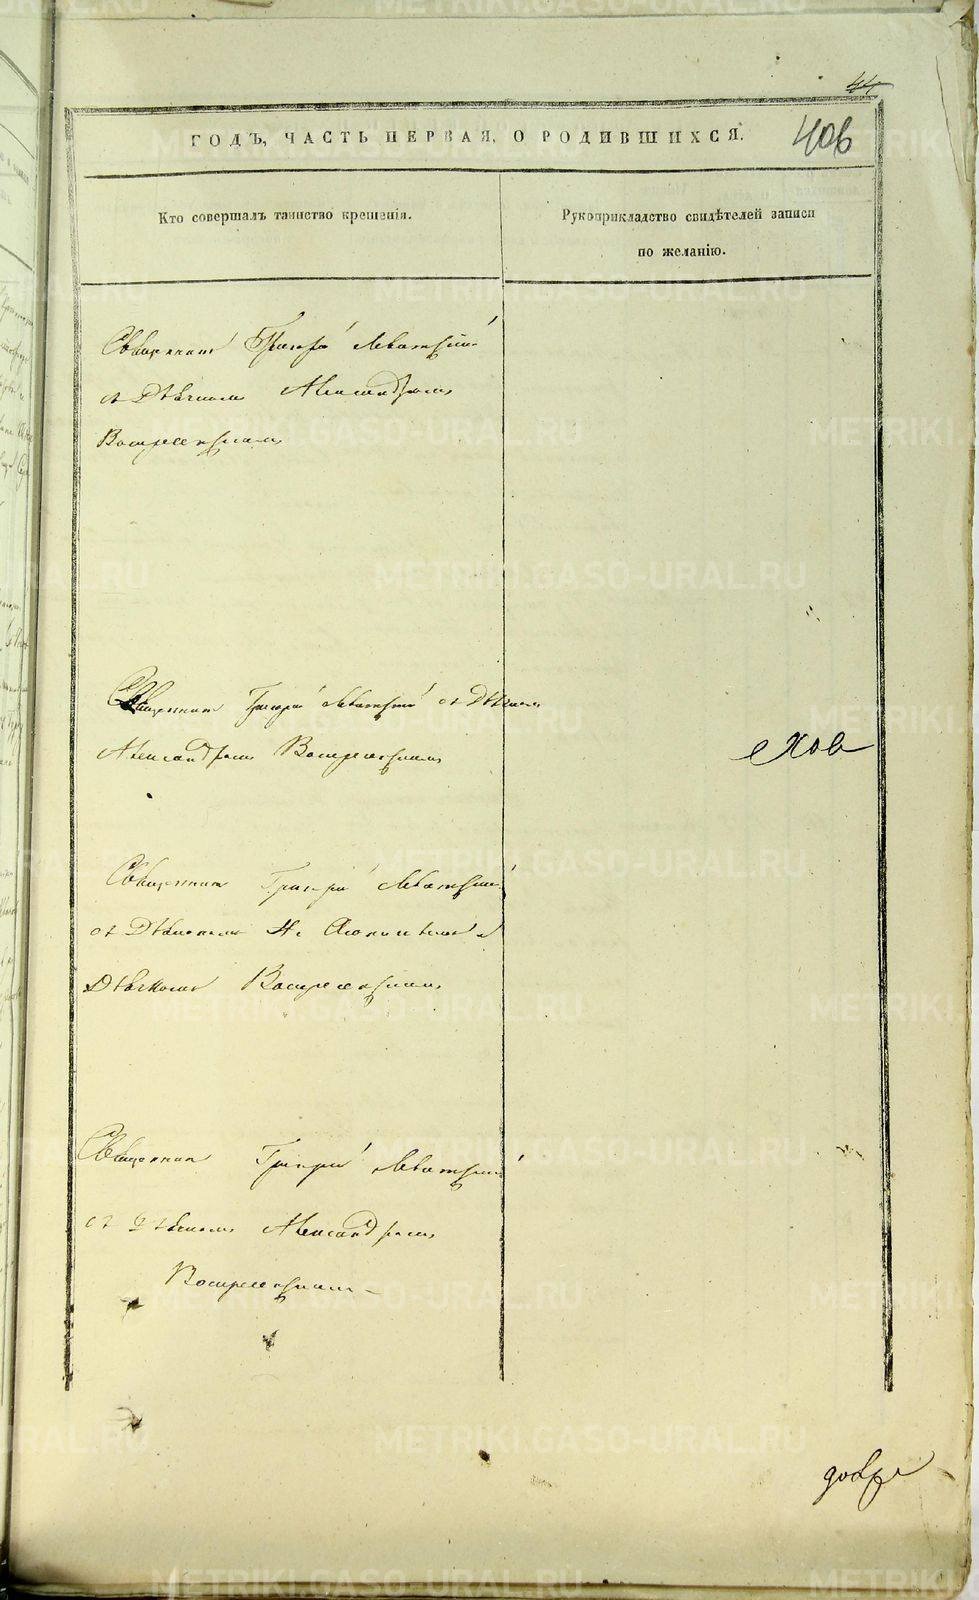 44
ГОДЪ, ЧАСТЬ ПЕРВАЯ, О РОДИВШИХСЯ.
406
Кто совершалъ таинство крещенія.
Рукоприкладство свидѣтелей записи
по желанію.
Священникъ Григорій Левитскій
съ Дьячкомъ Александромъ
Воскресенскимъ
Священникъ Григорій Левитскій съ Дьячкомъ
Александромъ Воскресенскимъ
Священникъ Григорій Левитскій
съ Дьякономъ и
Дьячкомъ Воскресенскимъ
Священникъ Григорій Левитскій
съ Дьячкомъ Александромъ
Воскресенскимъ
METRIKI.GASO-URAL.RU